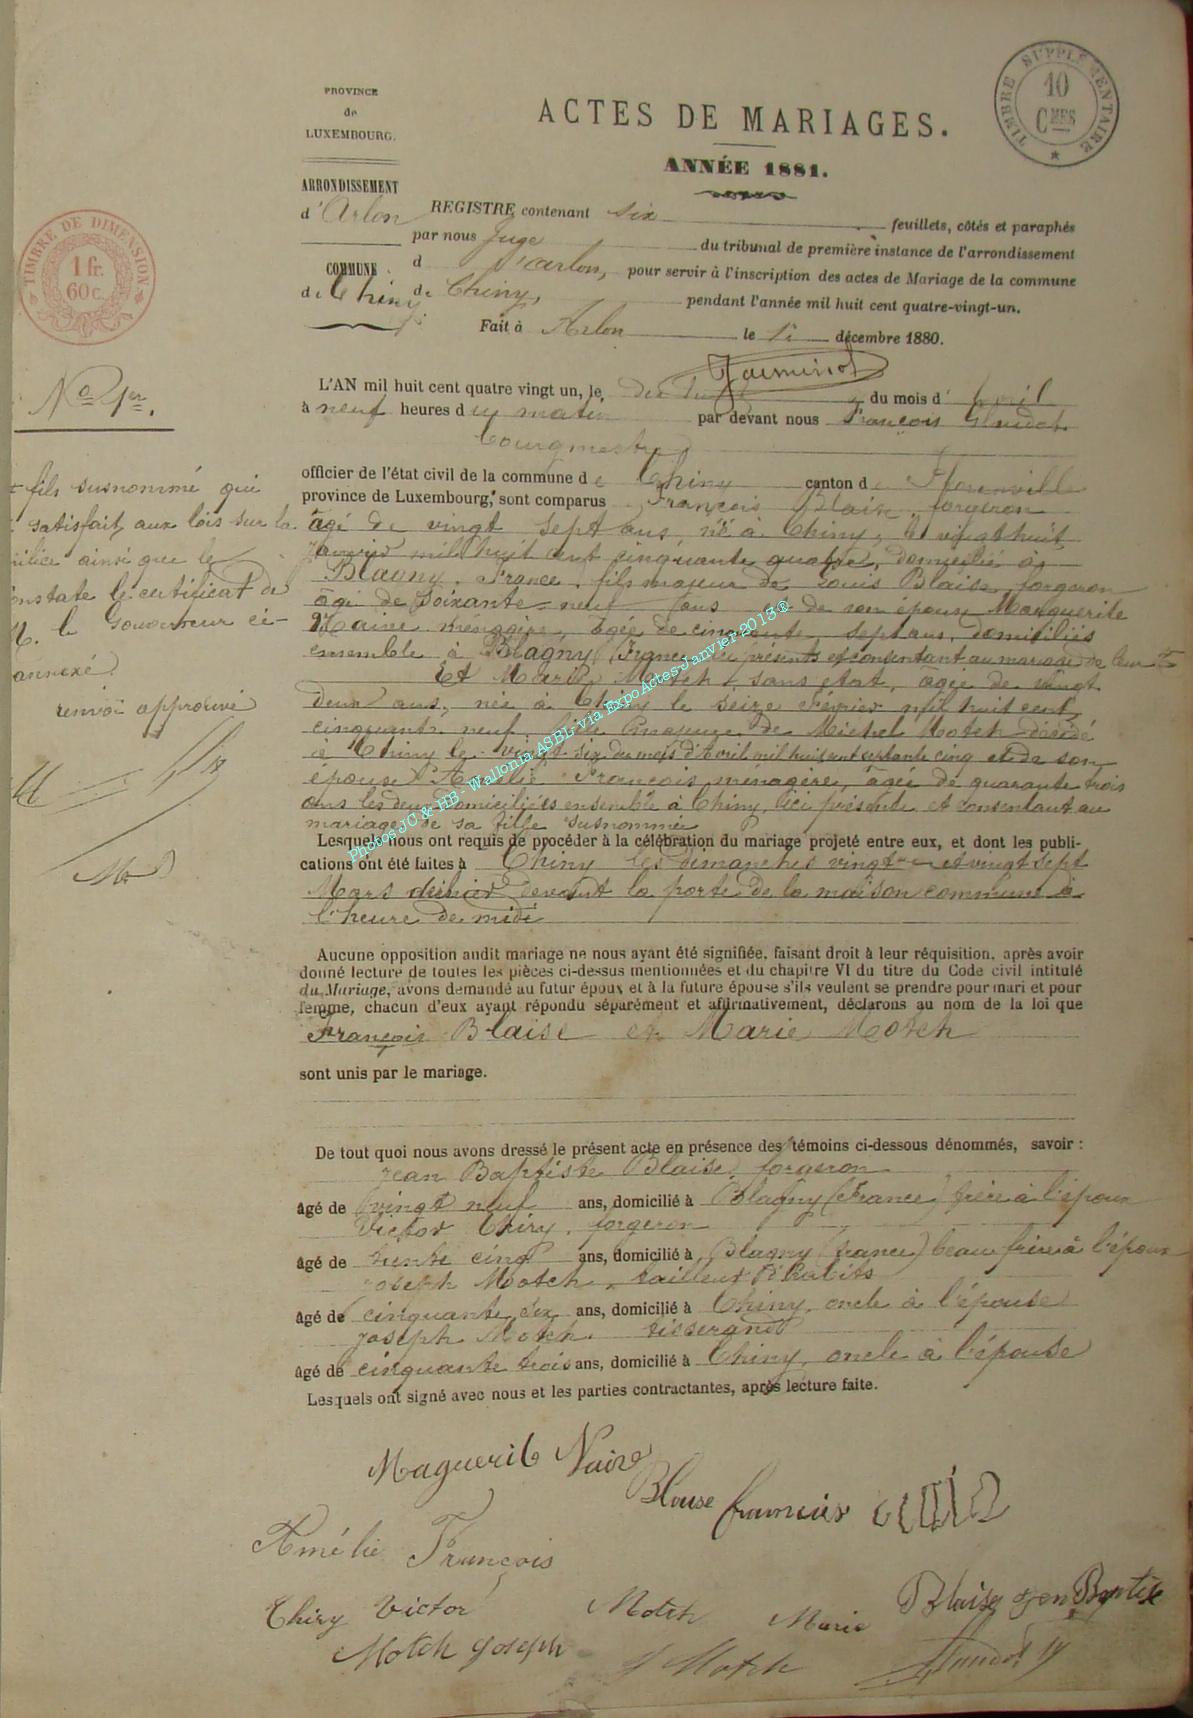 PROVINCE
de
LUXEMBOURG.
ARRONDISSEMENT
d'Arlon
COMMUNE
de Chiny
TIMBRE SUPPLÉMENTAIRE
10
CMES
TIMBRE DE DIMENSION
1 fr.
60 c.
ACTES DE MARIAGES.
ANNÉE 1881.
REGISTRE contenant six feuillets, côtés et paraphés
par nous Juge du tribunal de première instance de l'arrondissement
d d'arlon, pour servir à l'inscription des actes de Mariage de la commune
de Chiny, pendant l'année mil huit cent quatre-vingt-un.
Fait à Arlon le décembre 1880.
No 1er.
fils susnommé qui
satisfait aux lois sur la
milice ainsi que le
constate le certificat de
M. le Gouverneur ci-
annexé
renvoi approuvé
L'AN mil huit cent quatre vingt un, le du mois d'Avril
à neuf heures du matin par devant nous François
bourgmestre
officier de l'état civil de la commune de Chiny canton de Florenville
province de Luxembourg, sont comparus François Blaise, forgeron
âgé de vingt sept ans, né à Chiny, le vingt huit
Janvier mil huit cent cinquante quatre, domicilié à
Blagny, France, fils majeur de Louis Blaise, forgeron
âgé de soixante neuf ans et de son épouse Marguerite
Naire ménagère, âgée de cinquante sept ans, domiciliés
ensemble à Blagny (France) ici présents et consentant au mariage de leur
Et Marie Motch, sans état, âgée de vingt
deux ans, née à Chiny le seize Février mil huit cent
cinquante neuf, fille majeure de Michel Motch décédé
à Chiny le vingt six du mois d'Avril mil huit cent septante cinq et de son
épouse Amélie François ménagère, âgée de quarante trois
ans les deux domiciliées ensemble à Chiny, ici présente et consentant au
mariage de sa fille susnommée
Lesquels nous ont requis de ppocéder à la célébration du mariage projeté entre eux, et dont les publi-
cations ont été faites à Chiny les dimanches vingt et vingt sept
Mars dernier devant la porte de la maison commune à
l'heure de midi
Aucune opposition audit mariage ne nous ayant été signifiée, faisant droit à leur réquisition, après avoir
donné lecture de toutes les pièces ci-dessus mentionnées et du chapitre VI du titre du Code civil intitulé
du Mariage, avons demandé au futur époux et à la future épouse s'ils veulent se prendre pour mari et pour
femme, chacun d'eux ayant répondu séparément et affirmativement, déclarons au nom de la loi que
François Blaise et Marie Motch
sont unis par le mariage.
De tout quoi nous avons dressé le présent acte en présence des témoins ci-dessous dénommés, savoir :
Jean Baptiste Blaise, forgeron
âgé de vingt neuf ans, domicilié à Blagny (France) frère à l'époux
Victor Thiry, forgeron
âgé de trente cinq ans, domicilié à Blagny (france) beau frère à l'époux
Joseph Motch, tailleur d'habits
âgé de cinquante six ans, domicilié à Chiny, oncle à l'épouse
Joseph Motch. tisserand
âgé de cinquante trois ans, domicilié à Chiny, oncle à l'épouse
Lesquels ont signé avec nous et les parties contractantes, après lecture faite.
Maguerite Naire
Blaise francois
Amélie François
Thiry Victor Motch Marie Blaise Jen Baptise
Motch Joseph J Motch
Photos JC & HB - Wallonia ASBL via ExpoActes Janvier 2013 ®